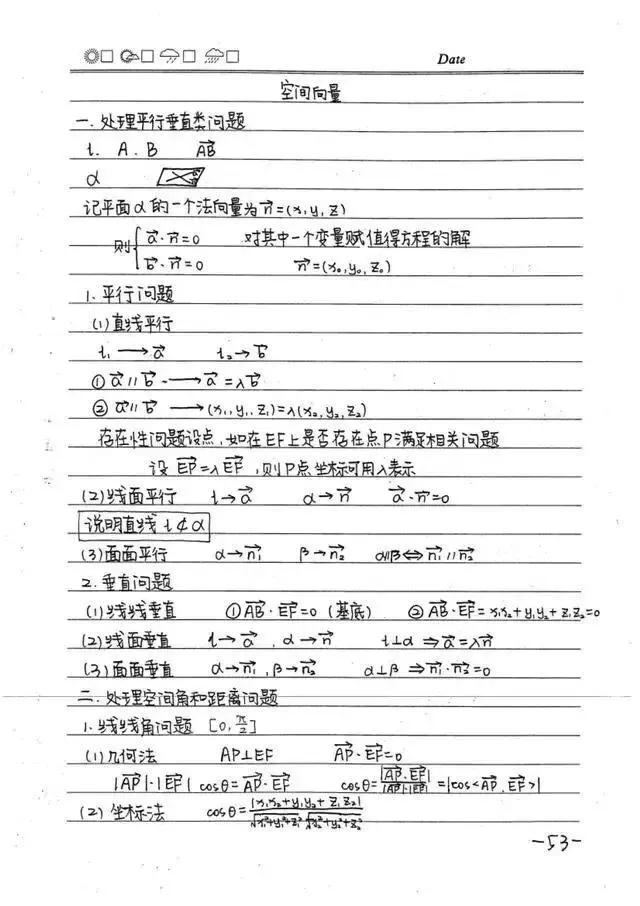 Date
空间向量
一. 处理平行垂直类问题
l. A. B $\overrightarrow{AB}$
α
记平面α的一个法向量为$\vec{n}$=(x, y, z)
则{$\vec{a}$·$\vec{n}$=0 对其中一个变量赋值得方程的解
$\vec{b}$·$\vec{n}$=0 $\vec{n}$=(x₀, y₀, z₀)
1. 平行问题
(1) 直线平行
l₁ → $\vec{a}$ l₂ → $\vec{b}$
① $\vec{a}$ // $\vec{b}$ → $\vec{a}$=λ$\vec{b}$
② $\vec{a}$ // $\vec{b}$ → (x₁, y₁, z₁)=λ(x₂, y₂, z₂)
存在性问题设点, 如在EF上是否存在点P满足相关问题
设 $\overrightarrow{EP}$=λ$\overrightarrow{EF}$, 则P点坐标可用λ表示
(2) 线面平行 l→$\vec{a}$ α→$\vec{n}$ $\vec{a}$·$\vec{n}$=0
说明直线 l⊄α
(3) 面面平行 α→$\vec{n_1}$ β→$\vec{n_2}$ α//β⇔$\vec{n_1}$//$\vec{n_2}$
2. 垂直问题
(1) 线线垂直 ①$\overrightarrow{AB}$·$\overrightarrow{EF}$=0 (基底) ②$\overrightarrow{AB}$·$\overrightarrow{EF}$=x₁x₂+y₁y₂+z₁z₂=0
(2) 线面垂直 l→$\vec{a}$, α→$\vec{n}$ l⊥α⇒$\vec{a}$=λ$\vec{n}$
(3) 面面垂直 α→$\vec{n_1}$, β→$\vec{n_2}$ α⊥β⇒$\vec{n_1}$·$\vec{n_2}$=0
二. 处理空间角和距离问题
1. 线线角问题 [0, $\frac{π}{2}$]
(1) 几何法 AP⊥EF $\overrightarrow{AP}$·$\overrightarrow{EF}$=0
|$\overrightarrow{AP}$|·|$\overrightarrow{EF}$| cosθ=$\overrightarrow{AP}$·$\overrightarrow{EF}$ cosθ=$\frac{|\overrightarrow{AP}·\overrightarrow{EF}|}{|\overrightarrow{AP}|·|\overrightarrow{EF}|}$=|cos<$\overrightarrow{AP}$, $\overrightarrow{EF}$>|
(2) 坐标法 cosθ=$\frac{|x_1x_2+y_1y_2+z_1z_2|}{\sqrt{x_1^2+y_1^2+z_1^2}\sqrt{x_2^2+y_2^2+z_2^2}}$
-53-